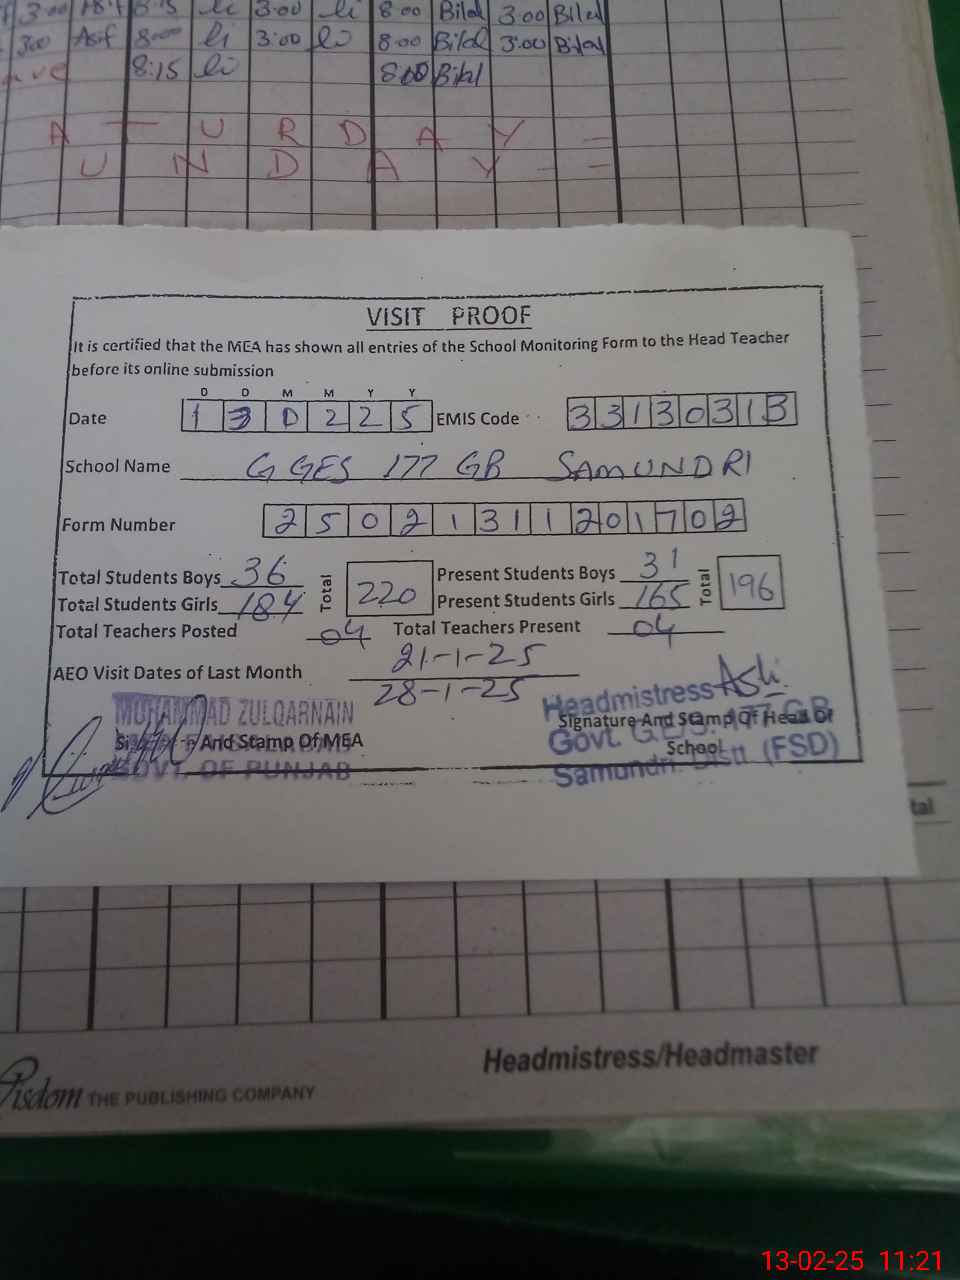 3:00 Asif 8:15 li 3:00 li 8:00 Bilal 3:00 Bilal
300 Asif 8:00 li 3:00 li 8:00 Bilal 3:00 Bilal
8:15 li 8:00 Bilal
A T U R D A Y =
U N D A Y =
VISIT PROOF
It is certified that the MEA has shown all entries of the School Monitoring Form to the Head Teacher
before its online submission
D D M M Y Y
Date 1 3 0 2 2 5 EMIS Code 3 3 1 3 0 3 1 3
School Name G GES 177 GB SAMUNDRI
Form Number 2 5 0 2 1 3 1 1 2 0 1 7 0 2
Total Students Boys 36 Total 220 Present Students Boys 31 Total 196
Total Students Girls 184 Present Students Girls 165
Total Teachers Posted 04 Total Teachers Present 04
AEO Visit Dates of Last Month 21-1-25
28-1-25
MUHAMMAD ZULQARNAIN
And Stamp Of MEA
GOVT. OF PUNJAB
Headmistress
Signature And Stamp Of Head Of
School
Govt. G.E.S. 177 GB
Samundri. Distt (FSD)
tal
Headmistress/Headmaster
THE PUBLISHING COMPANY
13-02-25 11:21